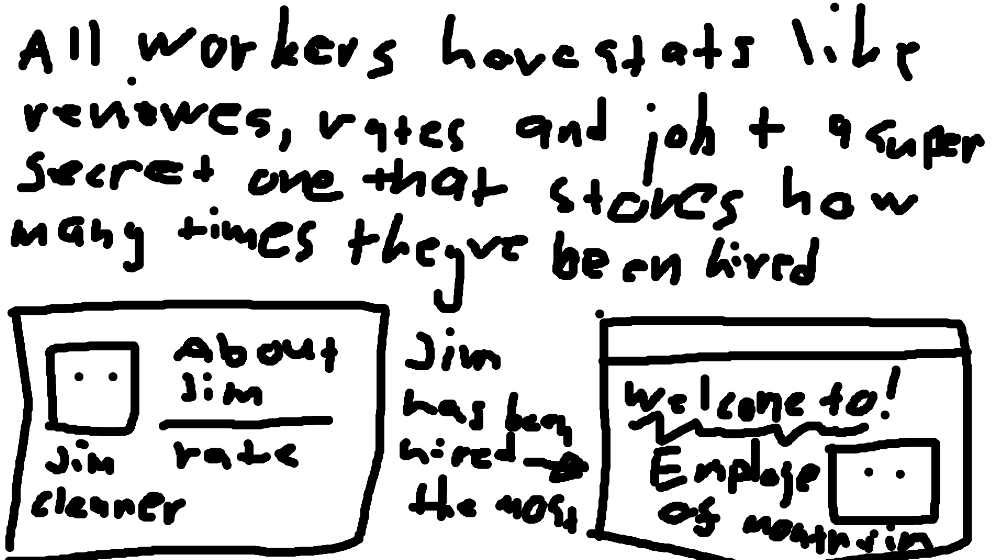 All workers have stats like
reviwes, rates and job + a super
secret one that stores how
many times theyve been hired
About
Jim
rate
Jim
cleaner
Jim
has been
hired
the most
Welcome to!
Employe
of month Jim